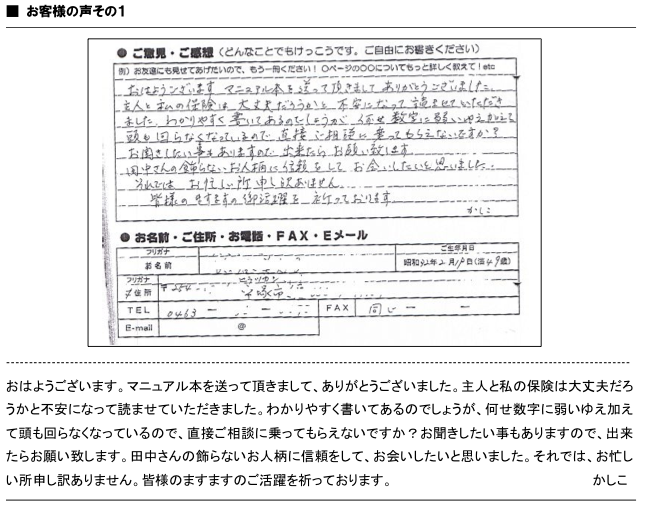 ■ お客様の声その1
● ご意見・ご感想（どんなことでもけっこうです。ご自由にお書きください）
例）お友達にも見せてあげたいので、もう一冊ください！○ページの○○についてもっと詳しく教えて！etc
おはようございます マニュアル本を送って頂きまして ありがとうございました。
主人と私の保険は 大丈夫だろうかと 不安になって 読ませていただき
ました。わかりやすく 書いてあるのでしょうが、何せ 数字に弱いゆえ加えて
頭も回らなくなっているので 直接ご相談に乗ってもらえないですか？
お聞きしたい事もありますので 出来たらお願い致します
田中さんの飾らないお人柄に信頼をして お会いしたいと思いました。
それでは お忙しい所申し訳ありません
皆様のますますの御活躍を祈っております。
かしこ
● お名前・ご住所・お電話・FAX・Eメール
フリガナ
お名前
ご生年月日
昭和 年2月 日(満49歳)
フリガナ
ご住所
〒254
平塚市
TEL 0463 － － FAX 同じ － －
E-mail @
おはようございます。マニュアル本を送って頂きまして、ありがとうございました。主人と私の保険は大丈夫だろ
うかと不安になって読ませていただきました。わかりやすく書いてあるのでしょうが、何せ数字に弱いゆえ加え
て頭も回らなくなっているので、直接ご相談に乗ってもらえないですか？お聞きしたい事もありますので、出来
たらお願い致します。田中さんの飾らないお人柄に信頼をして、お会いしたいと思いました。それでは、お忙し
い所申し訳ありません。皆様のますますのご活躍を祈っております。 かしこ